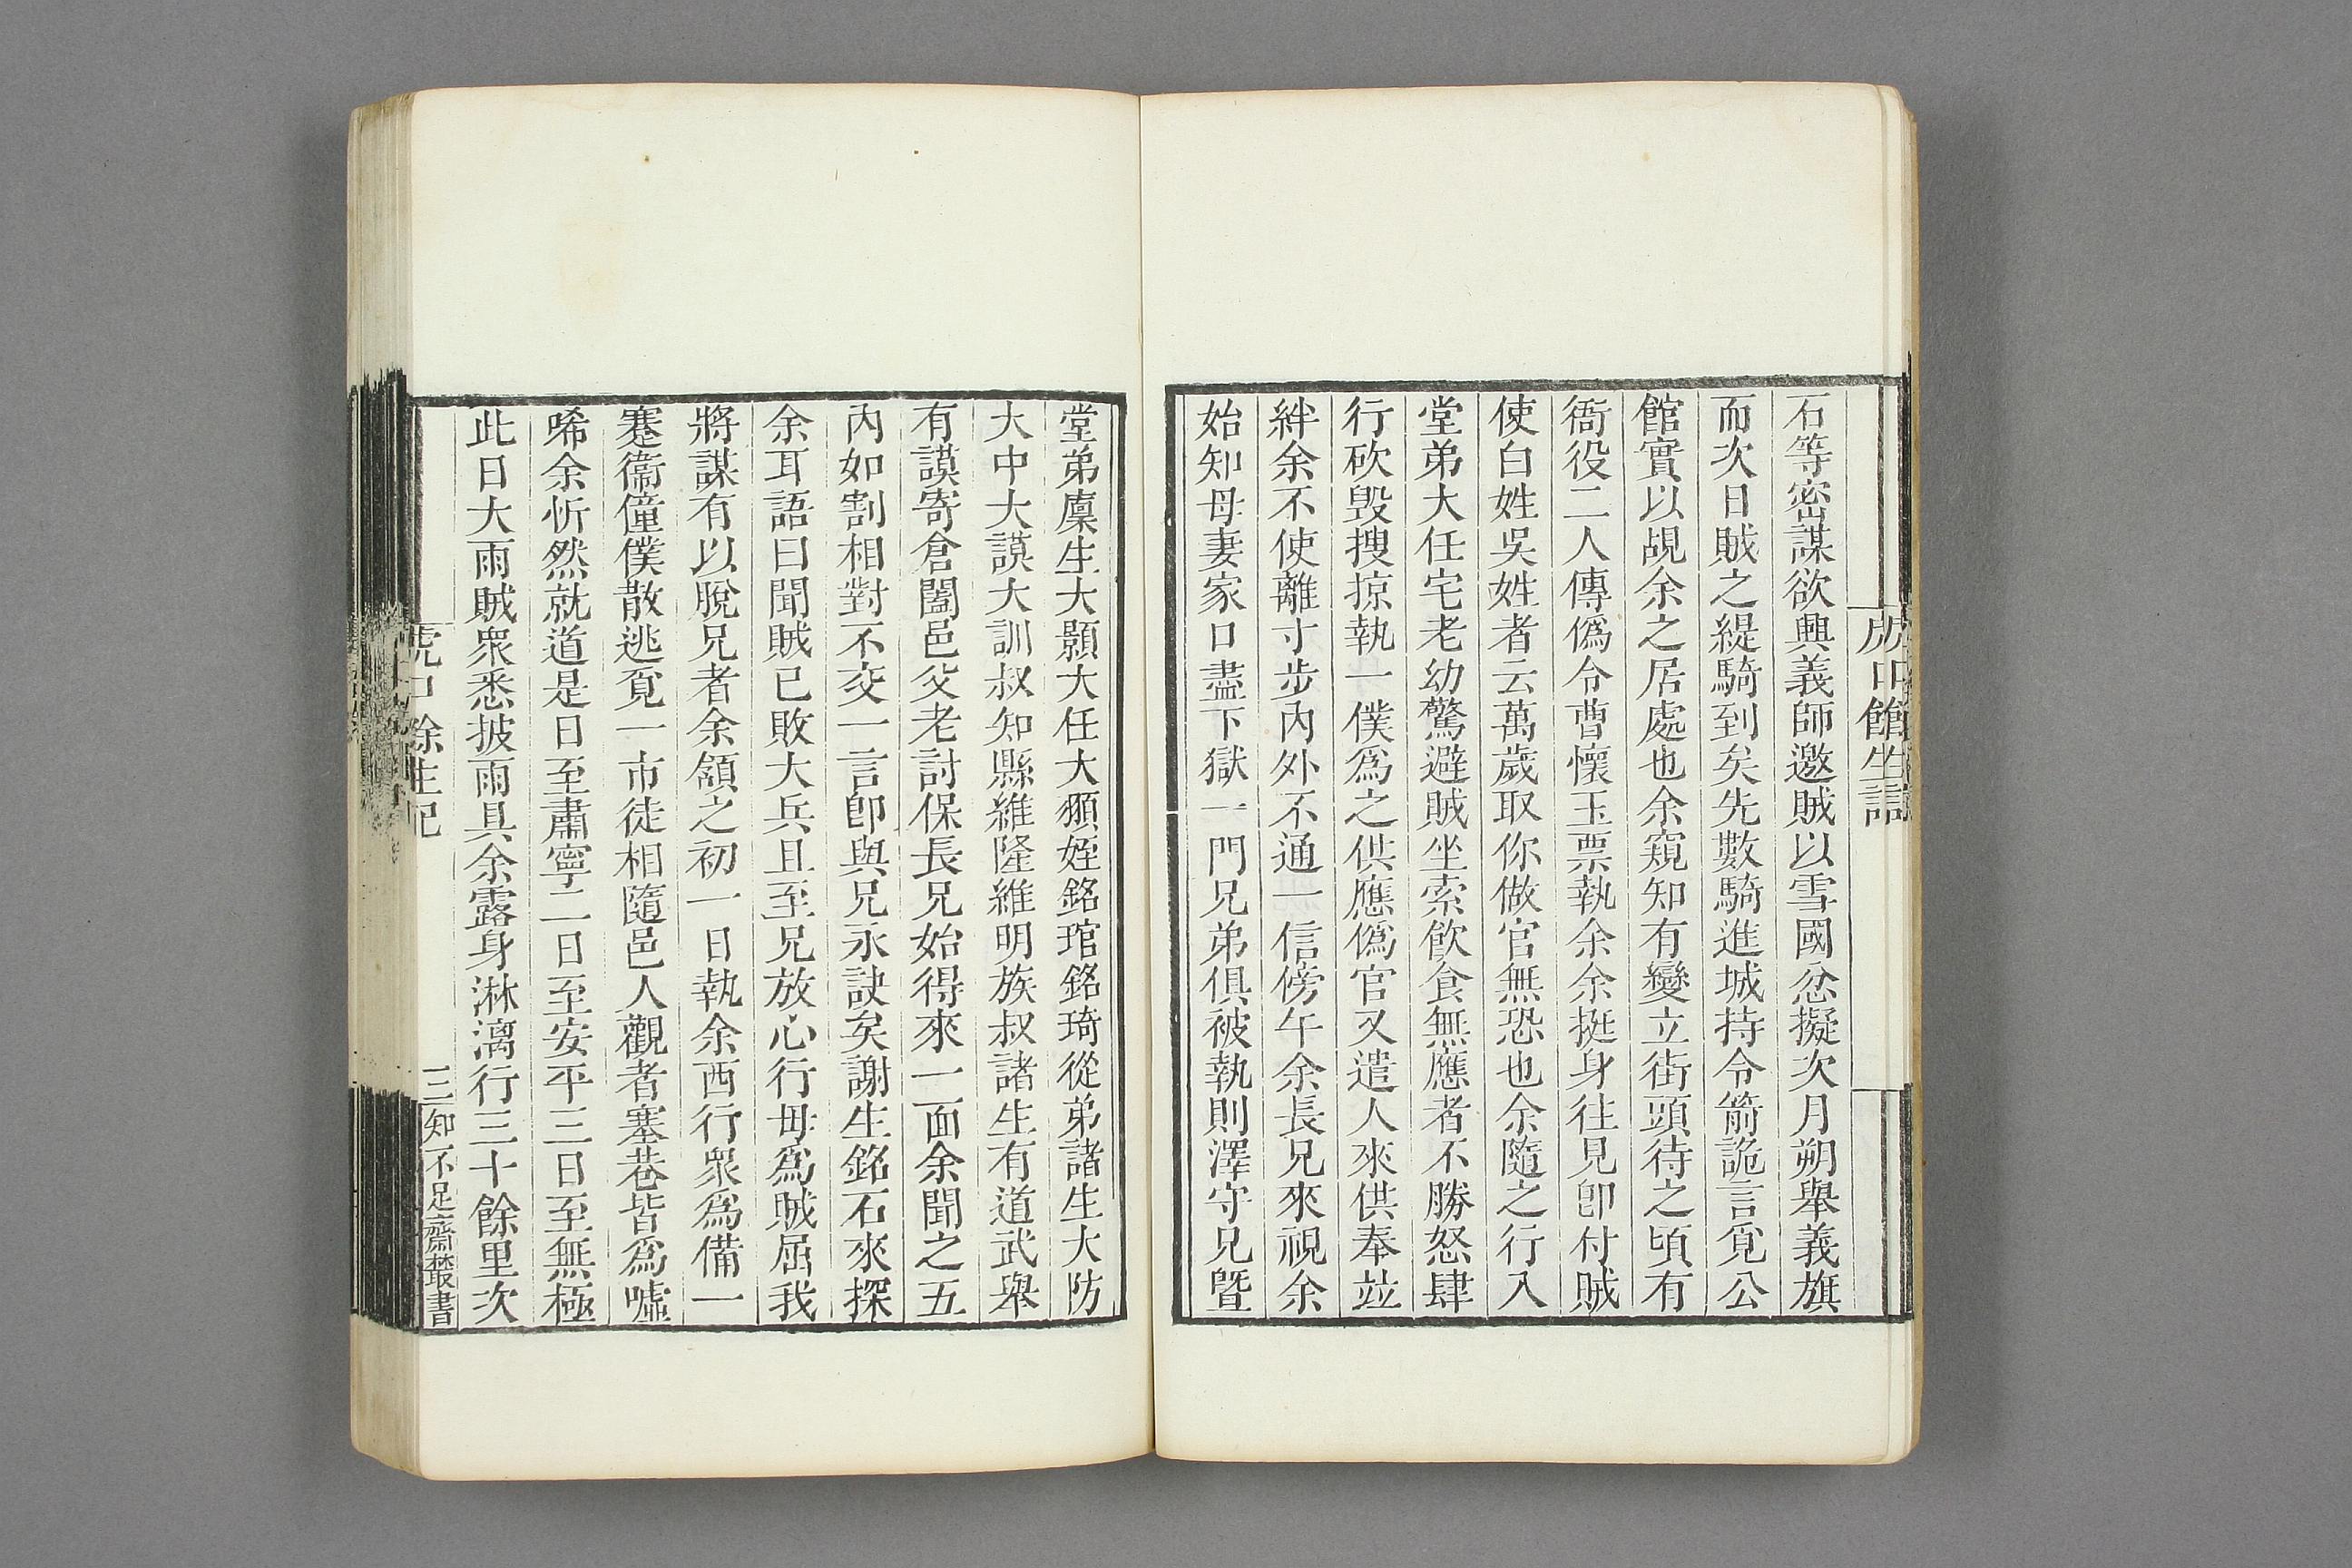 石等密謀欲興義師邀賊以雪國忿擬次月朔舉義旗
而次日賊之緹騎到矣先數騎進城持令箭詭言覓公
館實以覘余之居處也余窺知有變立街頭待之頃有
衙役二人傳僞令曹懷玉票執余余挺身往見卽付賊
使白姓吳姓者云萬歲取你做官無恐也余隨之行入
堂弟大任宅老幼驚避賊坐索飲食無應者不勝怒肆
行砍毀搜掠執一僕爲之供應僞官又遣人來供奉竝
絆余不使離寸步內外不通一信傍午余長兄來視余
始知母妻家口盡下獄一門兄弟俱被執則澤守兄曁
堂弟廩生大顥大任大頫姪銘琯銘琦從弟諸生大防
大中大謨大訓叔知縣維隆維明族叔諸生有道武舉
有謨寄倉闔邑父老討保長兄始得來一面余聞之五
內如割相對不交一言卽與兄永訣矣謝生銘石來探
余耳語曰聞賊已敗大兵且至兄放心行毋爲賊屈我
將謀有以脫兄者余頷之初一日執余西行衆爲備一
蹇衞僮僕散逃覓一市徒相隨邑人觀者塞巷皆爲噓
唏余忻然就道是日至肅寧二日至安平三日至無極
此日大雨賊衆悉披雨具余露身淋漓行三十餘里次
虎口餘生記
三
知不足齋叢書